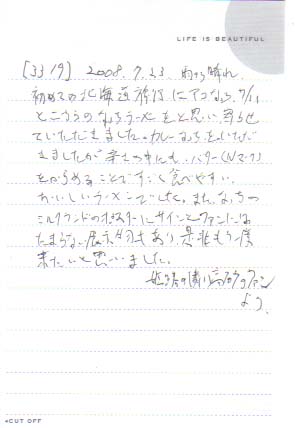 LIFE IS BEAUTIFUL
[3319] 2008.7.23. 雨のち晴れ
初めての北海道旅行に
ところのなっちラーメンをと思い、寄らせ
ていただきました。カレーなっちをいただ
きましたが辛さの中にも、バター(Nマーク)
をからめることですごく食べやすい、
おいしいラーメンでした。また、なっちの
ミルクランドのポスターにサインとファンには
たまらない展示物もあり、是非もう一度
来たいと思いました。
ファン
より。
CUT OFF